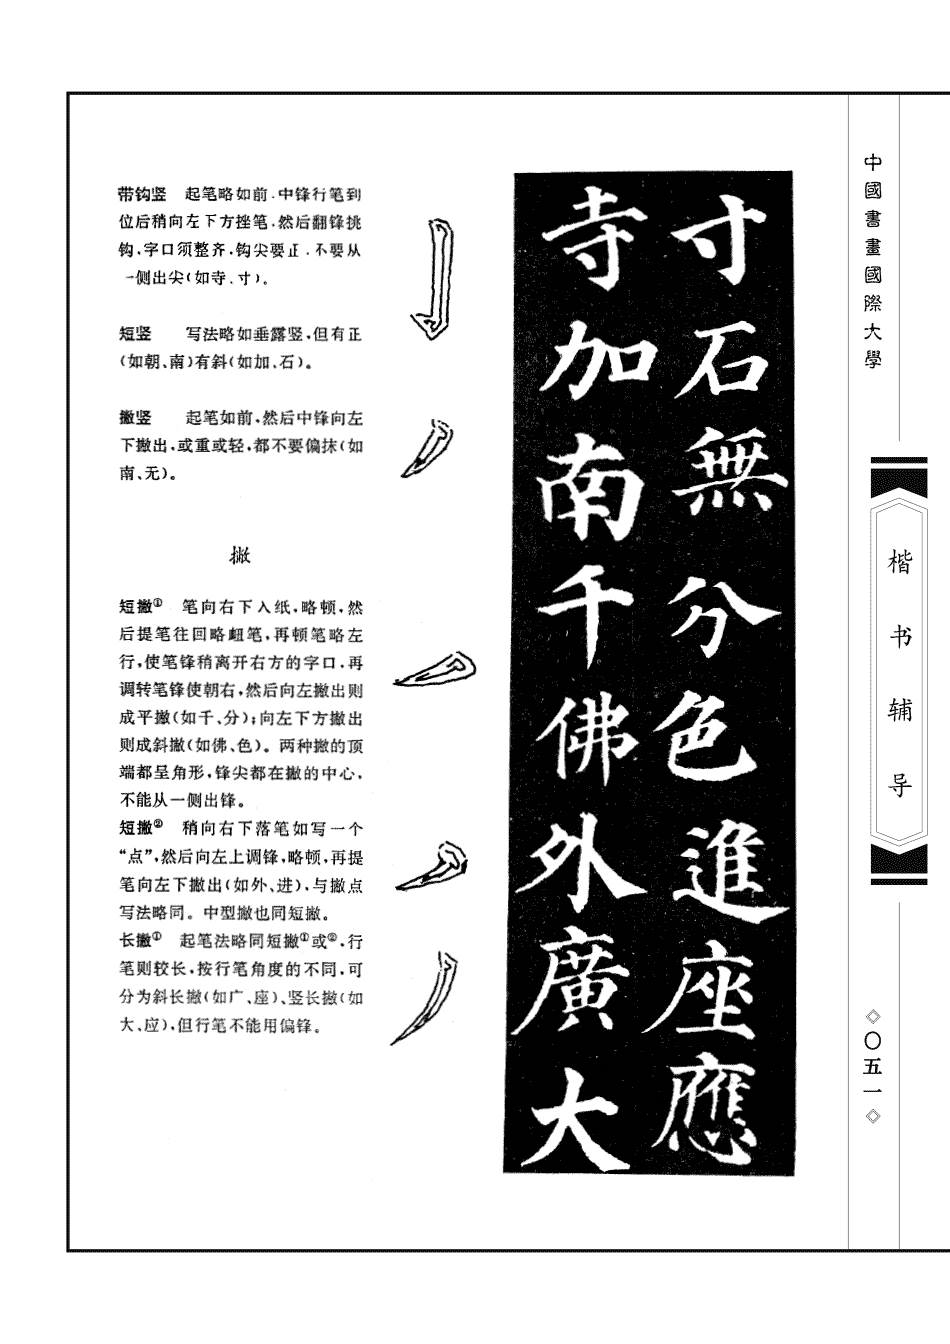 带钩竖　起笔略如前.中锋行笔到
位后稍向左下方挫笔.然后翻锋挑
钩.字口须整齐.钩尖要正.不要从
一侧出尖(如寺、寸)。
短竖　写法略如垂露竖,但有正
(如朝、南)有斜(如加、石)。
撇竖　起笔如前,然后中锋向左
下撇出,或重或轻,都不要偏抹(如
南、无)。
撇
短撇①　笔向右下入纸,略顿,然
后提笔往回略衄笔,再顿笔略左
行,使笔锋稍离开右方的字口,再
调转笔锋使朝右,然后向左撇出则
成平撇(如千、分);向左下方撇出
则成斜撇(如佛、色)。两种撇的顶
端都呈角形,锋尖都在撇的中心,
不能从一侧出锋。
短撇②　稍向右下落笔如写一个
“点”,然后向左上调锋,略顿,再提
笔向左下撇出(如外、进),与撇点
写法略同。中型撇也同短撇。
长撇①　起笔法略同短撇①或②,行
笔则较长,按行笔角度的不同,可
分为斜长撇(如广、座)、竖长撇(如
大、应),但行笔不能用偏锋。
寸石無分色進座應
寺加南千佛外廣大
中國書畫國際大學
楷书辅导
〇五一